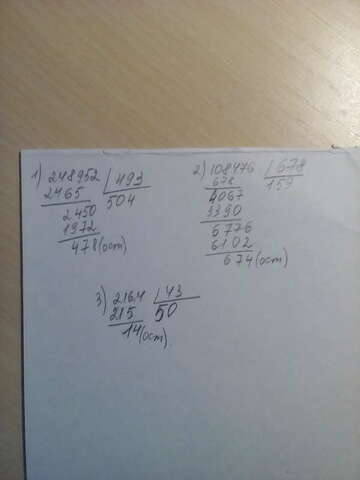 1) 248952 | 493
2465 504
2450
1972
478 (ост)
2) 108476 | 678
678 159
4067
3390
6776
6102
674 (ост)
3) 2164 | 43
215 50
14 (ост).